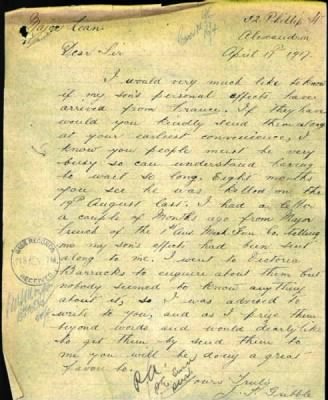 Major Lean
52 Phillip St
Alexandria
April 17th 1917.
Dear Sir
I would very much like to know
if my son's personal effects have
arrived from France. If they have
would you kindly send them along
at your earliest convenience. I
know you people must be very
busy so can understand having
to wait so long. Eight months
you see he was killed on the
19th August last. I had a letter
a couple of Months ago from Major
of the 1st Aus telling
me my son's effects had been sent
along to me. I went to Victoria
Barracks to enquire about them but
nobody seemed to know anything
about it, so I was advised to
write to you, and as I prize them
beyond words and would dearly like
to get them by send them to
me you will be doing a great
favor to.
Yours Truly
J. F. Gribble
BASE RECORDS
RECEIVED